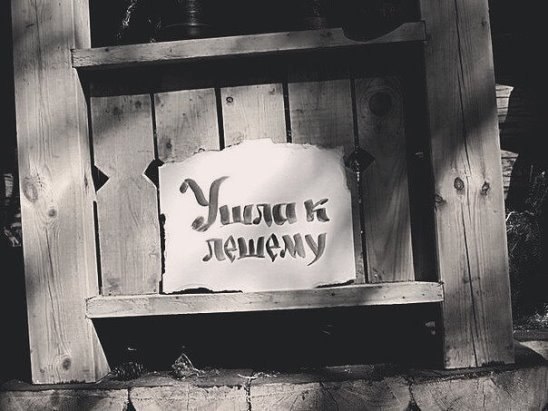 Ушла к
лешему